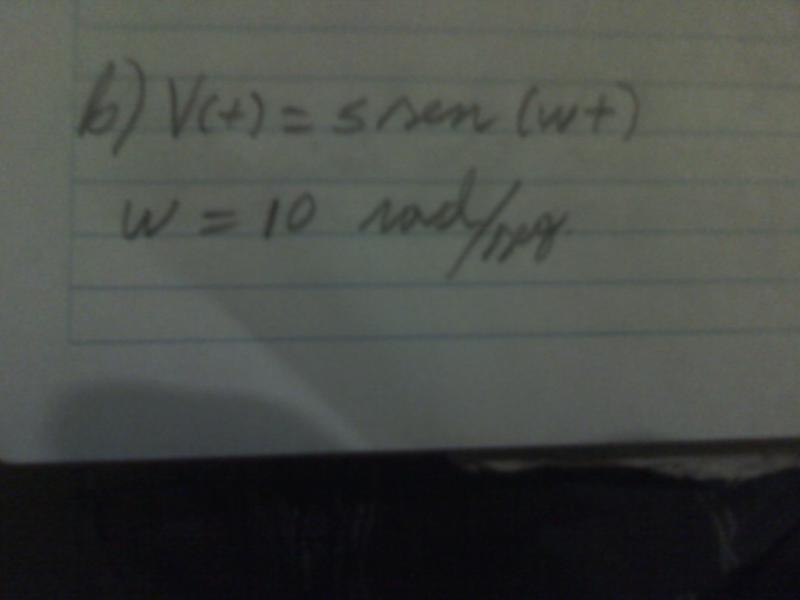 b) V(t) = 5 sen (wt)
w = 10 rad/seg.